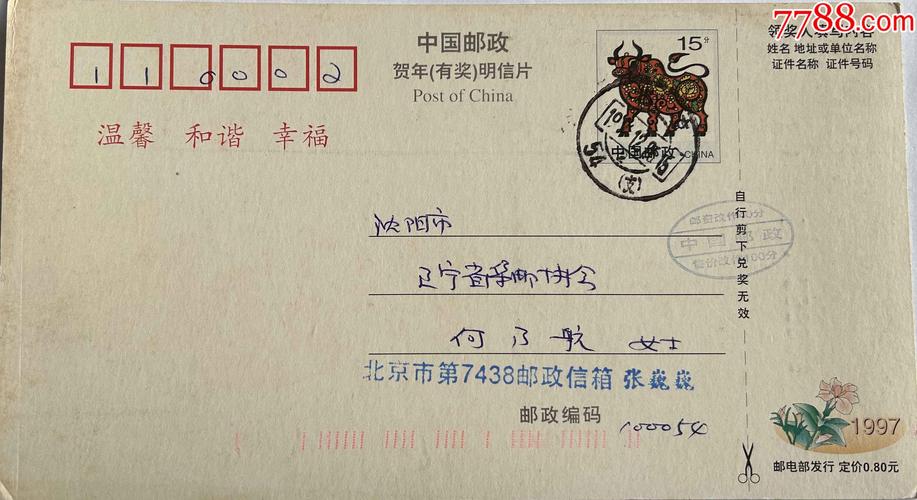 7788.com
中国邮政
贺年(有奖)明信片
Post of China
15分
中国邮政 CHINA
领奖人填写内容
姓名 地址或单位名称
证件名称 证件号码
110002
温馨 和谐 幸福
54
(支)
沈阳市
辽宁省集邮协会
何乃航 女士
邮资改作40分
中国邮政
售价改作100分
自行剪下兑奖无效
北京市第7438邮政信箱 张巍巍
邮政编码 100054
1997
邮电部发行 定价0.80元